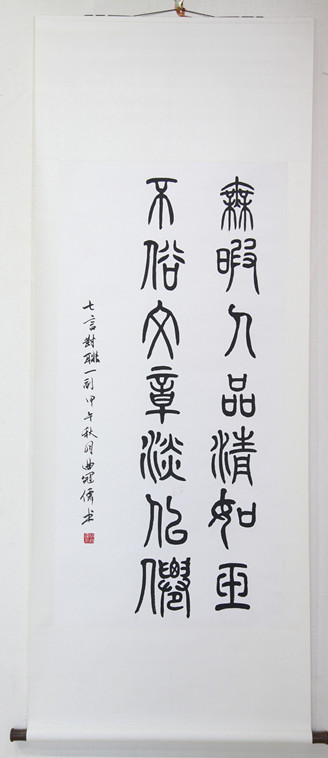 無暇人品清如玉
不俗文章淡似僊
七言對聯一副甲午秋月曲冠书